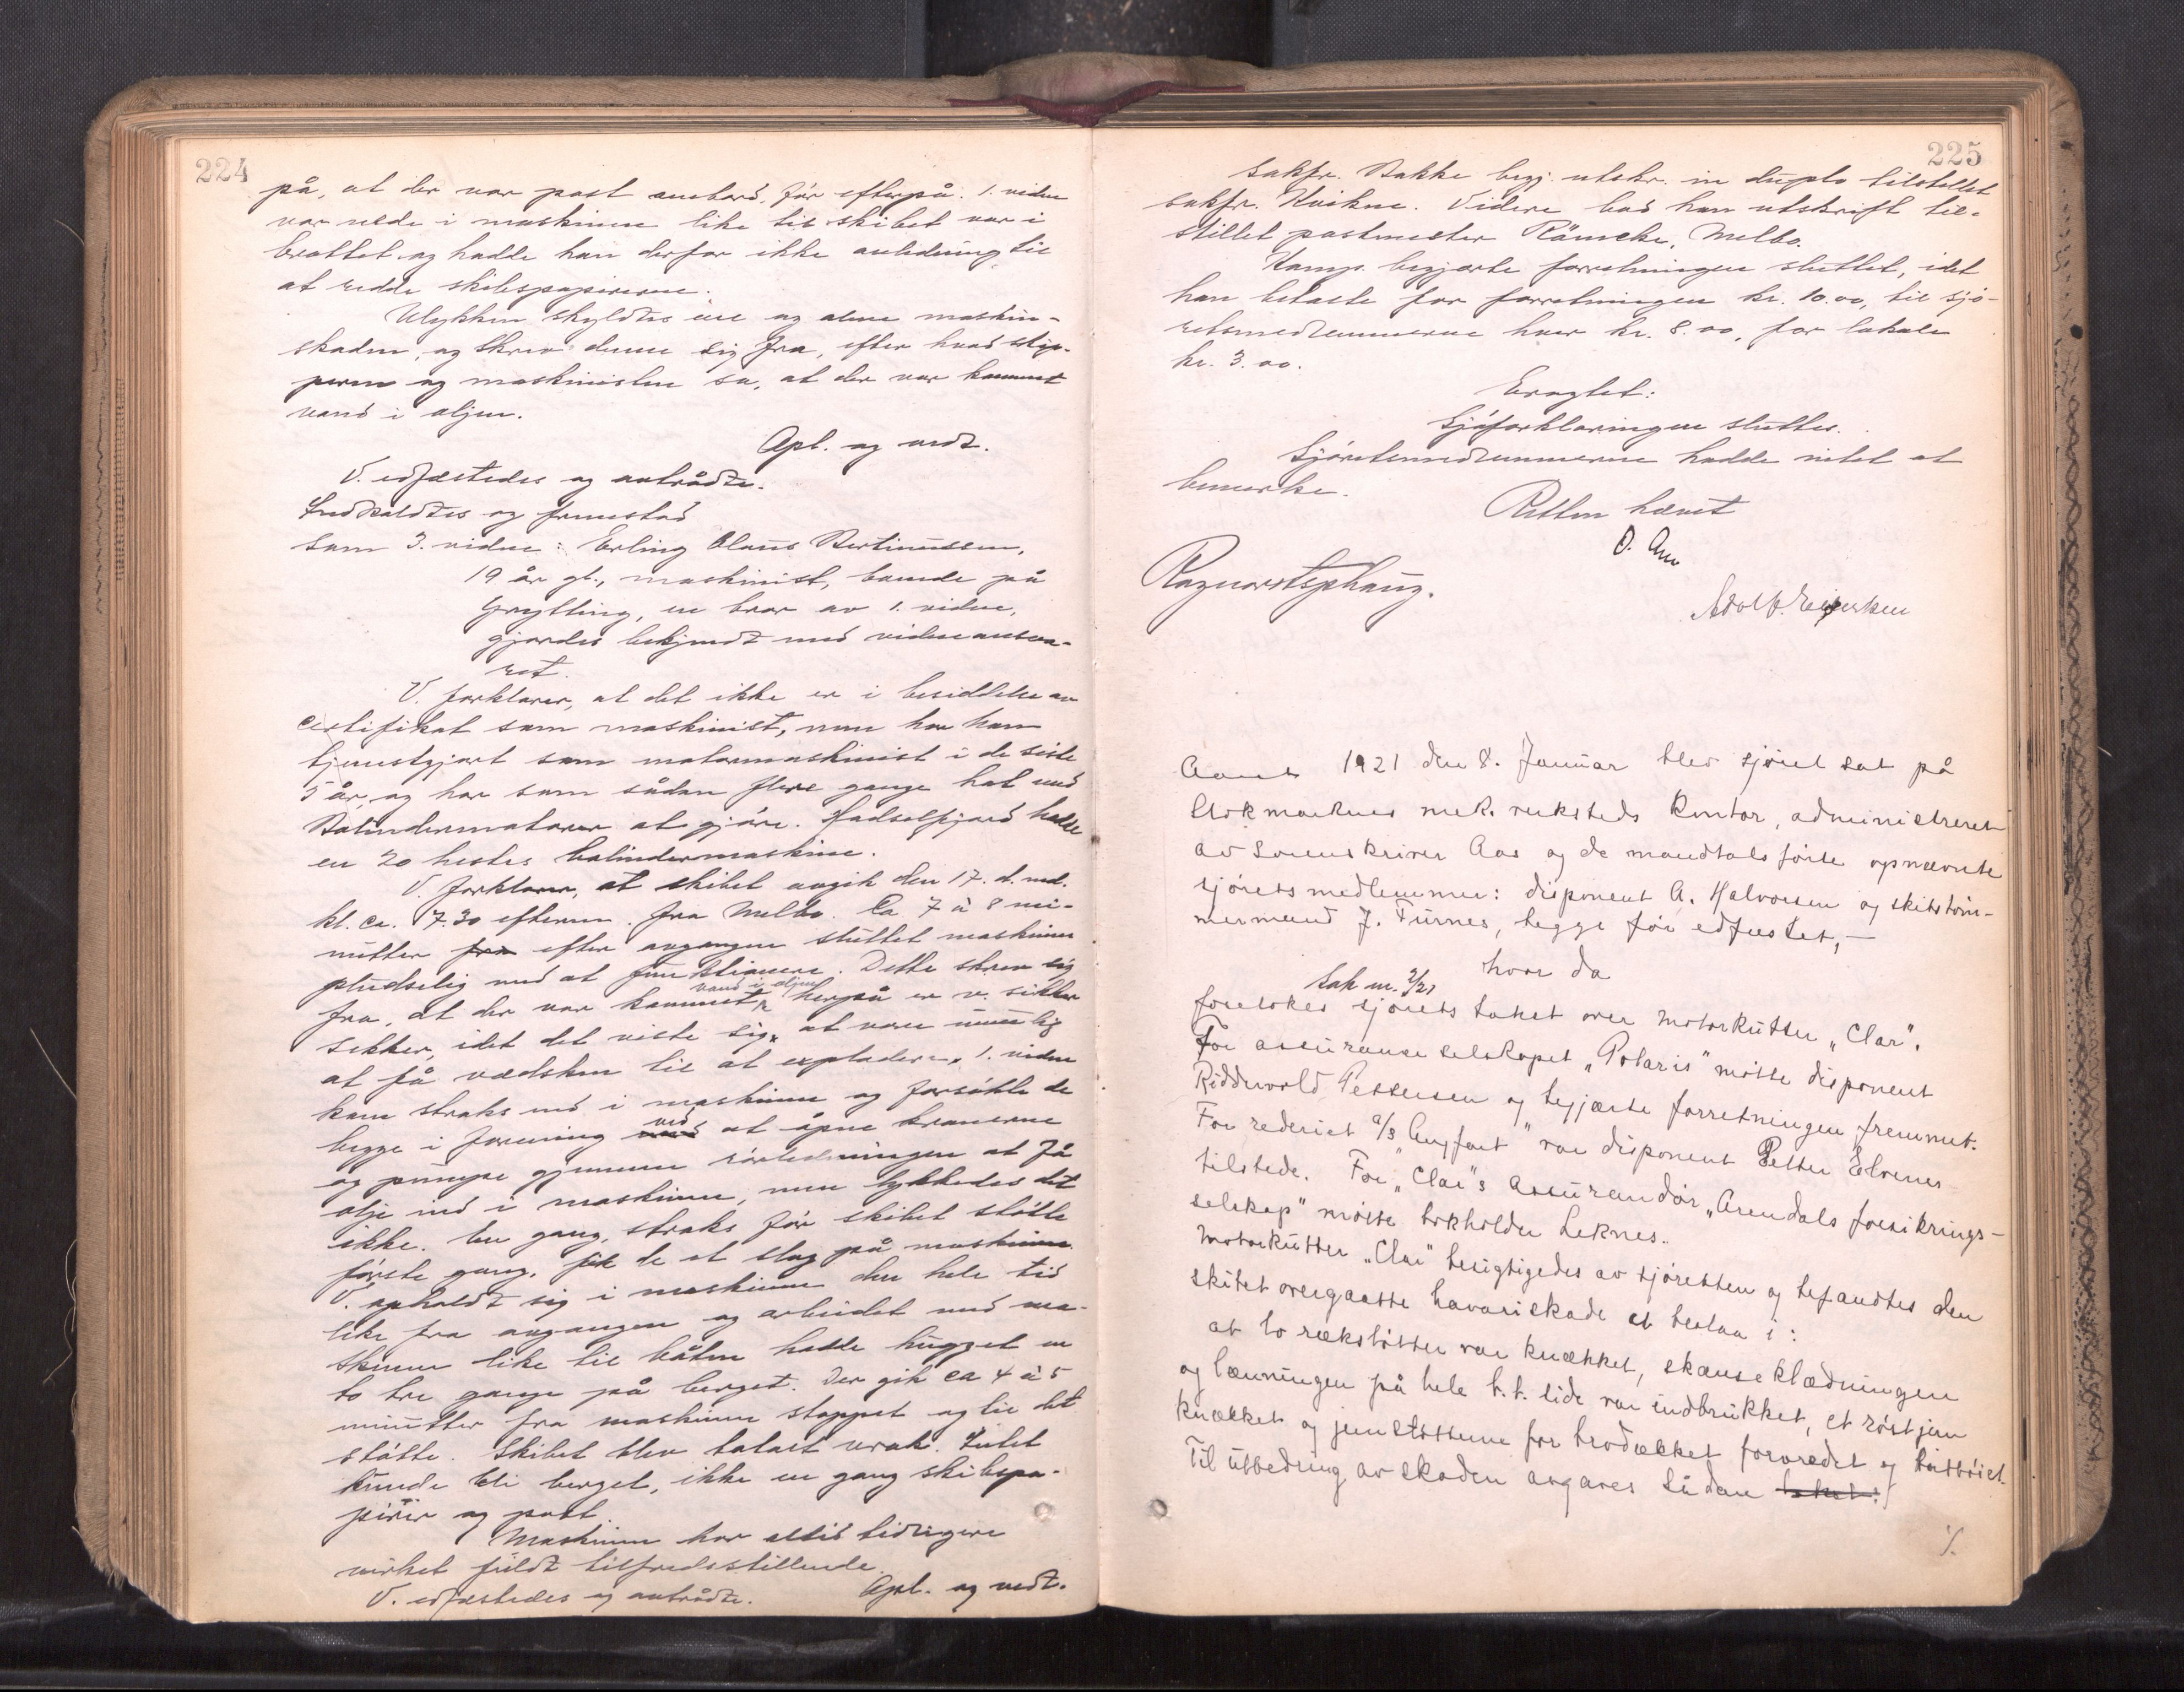 224
på, at der var post ombord, før efterpå. 1. vidne
var nede i maskinen like til skibet var i
brottet og hadde han derfor ikke anledning til
at redde skibspapirerne.
Ulykken skyldtes ene og alene maskin-
skaden, og skrev denne sig fra, efter hvad skip-
peren og maskinisten sa, at der var kommet
vand i oljen.
Opl. og vedt.
V. edfæstedes og antrådte.
Indkaldtes og fremstod
som 3. vidne: Erling Olaus Bertinussen,
19 år gl., maskinist, boende på
Grytting, en bror av 1. vidne,
gjordes bekjendt med vidneansva-
ret.
V. forklarer, at det ikke er i besiddelse av
certifikat som maskinist, men har han
tjenestgjort som motormaskinist i de siste
5 år, og har som sådan flere gange hat med
Bolindermotorer at gjøre. Hadselfjord hadde
en 20 hestes bolindermaskine.
V. forklarer, at skibet avgik den 17. d. md.
kl. ca. 7.30 efterm. fra Melbo. Ca 7 à 8 mi-
nutter fra efter avgangen sluttet maskinen
pludselig med at funktionere. Dette skrev sig
fra, at der var kommet vand i oljen, herpå er v. sikker
sikker, idet det viste sig at være umulig
at få vædsken til at explodere. 1. vidne
kom straks ned i maskinen og forsøkte de
begge i forening med ved at åpne kranerne
og pumpe gjennem rørledningen at få
olje ind i maskinen, men lykkedes det
ikke. En gang, straks før skibet støtte
første gang, fik de et slag på maskinen
V. opholdt sig i maskinen den hele tid
like fra avgangen og arbeidet med ma-
skinen like til båten hadde hugget en
to tre gange på berget. Der gik ca 4 à 5
minutter fra maskinen stoppet og til det
støtte. Skibet blev totalt vrak. Intet
kunde bli berget, ikke en gang skibspa-
pirer og post.
Maskinen har altid tidligere
virket fuldt tilfredsstillende.
Opl. og vedt.
V. edfæstedes og antrådte.
225
Sakfr. Bakke begj. utskr. in duplo tilstillet
sakfr. Kvikne. Videre bad han utskrift til-
stillet postmester Röncke, Melbo.
Komp. begjærte forretningen sluttet, idet
han betalte for forretningen kr. 10.00, til sjø-
retsmedlemmerne hver kr. 8.00, for lokale
kr. 3.00.
Eragtet:
Sjøforklaringen sluttes.
Sjøretsmedlemmerne hadde intet at
bemerke.
Retten hævet
O. Aas
Adolf Eilertsen
Aar 1921 den 8. Januar blev sjøret sat på
Stokmarknes mek. verksteds kontor, administreret
av sorenskriver Aas og de mandtalsførte opnævnte
sjøretsmedlemmer: disponent A. Halvorsen og skibstøm-
mermand J. Furnes, begge før edfæstet, —
hvor da
Sak nr. 2/21
foretokes sjøretstakst over motorkutter „Clar".
For assuranseselskapet „Polaris" møtte disponent
Ridderwold Pettersen og begjærte forretningen fremmet.
For rederiet a/s „ " var disponent Petter Elvenes
tilstede. For „Clar"s assurandør „Arendals forsikrings-
selskap" møtte bokholder Leknes.
Motorkutter „Clar" besigtigedes av sjøretten og befandtes den
skibet overgaatte havariskade at bestaa i:
at to rækstøtter var knækket, skanseklædningen
og lønningen på hele b.b. side var indbrukket, et røstjern
knækket og jernstøtterne for brodækket forvredet og
Til utbedring av skaden avgaves sådan takst:
./.